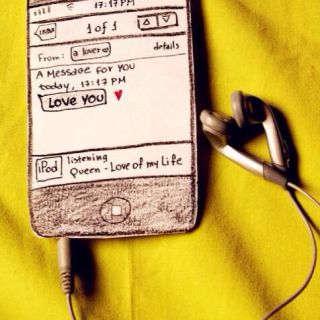 17:17 PM
INBOX 1 of 1
From: a lover details
A Message for you
today, 17:17 PM
LOVE YOU
iPod listening
Queen - Love of my Life